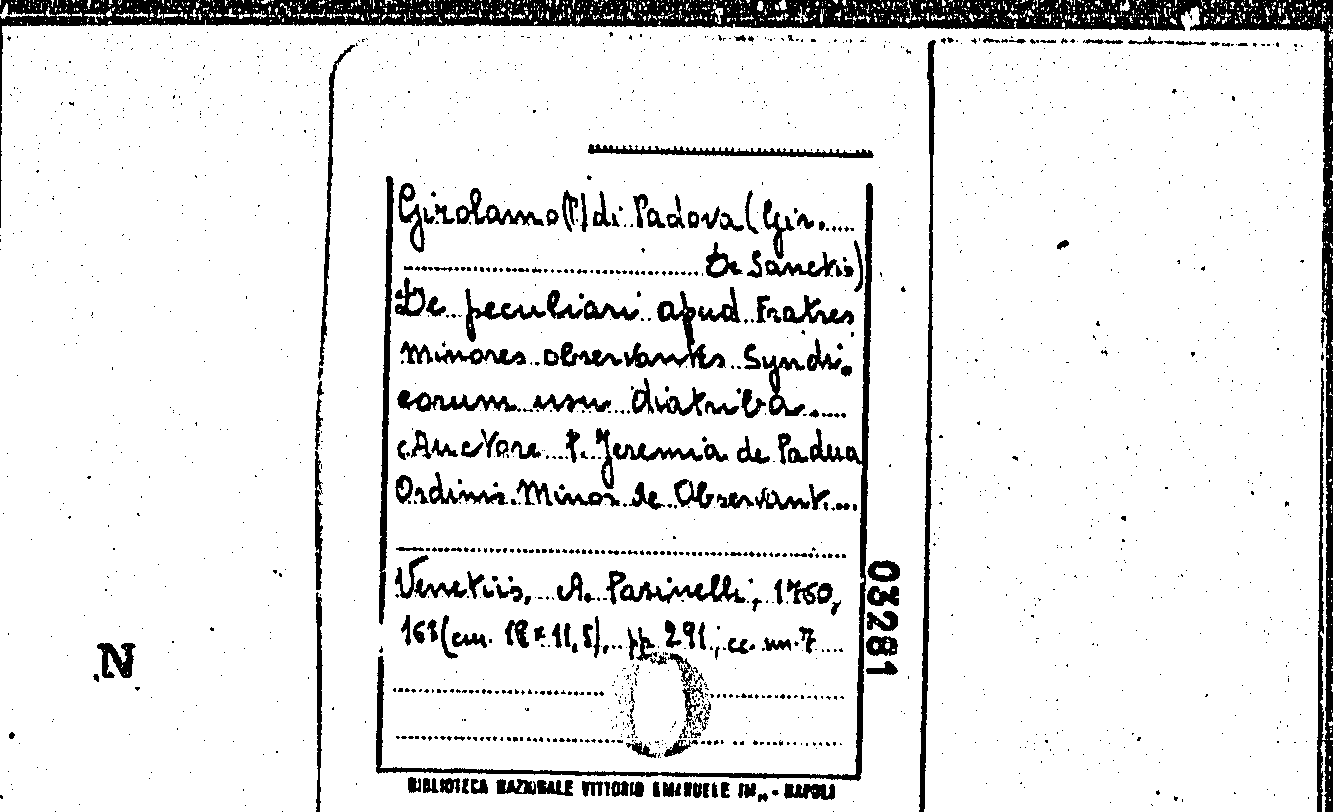 Girolamo (P) di Padova (Gir.
De Sanctis)
De peculiari apud Fratres
Minores observantes Syndi.
corum usu diatriba
Auctore P. Jeremia de Padua
Ordinis Minor de Observant.
Venetiis, A. Pasinelli, 1760,
16º (cm. 18 x 11,5), pp. 291, cc. nn. 7
03281
N
BIBLIOTECA NAZIONALE VITTORIO EMANUELE III,, - NAPOLI